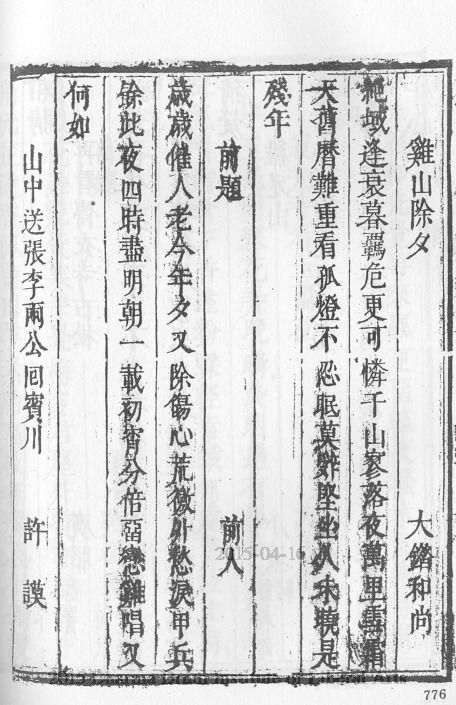 雞山除夕 大錯和尚
絶域逢衰暮羈危更可憐千山寥落夜萬里雪霜
天舊曆難重看孤燈不忍眠莫辭堅坐久未曉是
殘年
前題 前人
歲歲催人老今年夕又除傷心荒徼外愁淚甲兵
餘此夜四時盡明朝一載初宵分倍留戀雞唱又
何如
山中送張李兩公囘賓川 許謨
2015-04-16
776